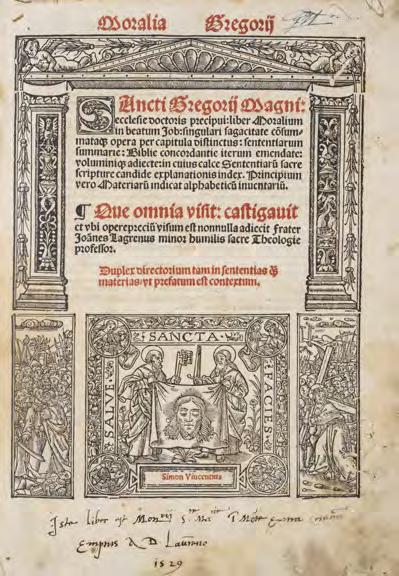 Moralia Gregorij
Sancti Gregorij Magni:
ecclesie doctoris precipui: liber Moralium
in beatum Job: singulari sagacitate cõsum-
mataq; opera per capitula distinctus: sententiarum
summarie: Biblie concordantie iterum emendate:
voluminiq; adiecte: in cuius calce Sententiarũ sacre
scripture candide explanationis index. Principium
vero Materiarũ indicat alphabeticũ inuentariũ.
¶ Que omnia visit: castigauit
et vbi operepreciũ visum est nonnulla adiecit frater
Joãnes Lagrenus minor humilis sacre Theologie
professor.
Duplex directorium tam in sententias q̃
materias: vt prefatum est contextum.
SALVE SANCTA FACIES
Simon Vincentius
Iste liber est
Emptus A D
1529